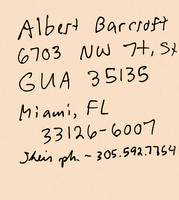 Albert Barcroft
6703 NW 7th St
GUA 35135
Miami, FL
33126-6007
Their ph. ~ 305.592.7754